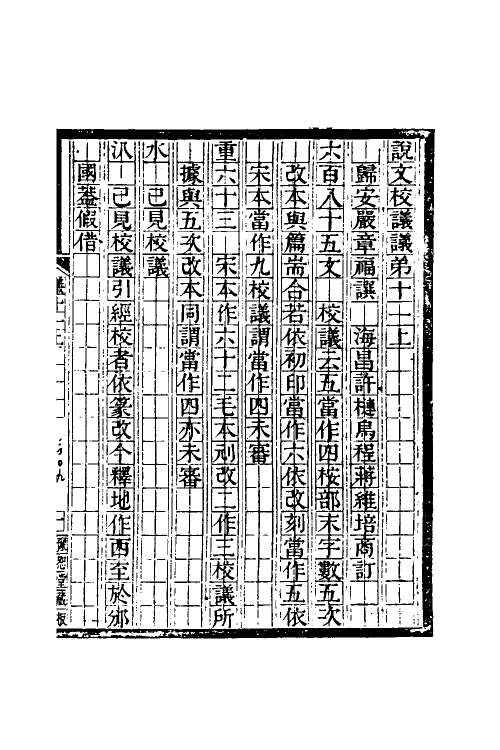 說文校議議弟十一上
歸安嚴章福譔 海昌許槤烏程蔣維培商訂
六百八十五文 校議云五當作四桉部末字數五次
改本與篇耑合若依初印當作六依改刻當作五依
宋本當作九校議謂當作四未審
重六十三 宋本作六十二毛本刓改二作三校議所
據與五次改本同謂當作四亦未審
水 已見校議
汃 已見校議引經校者依篆改今釋地作西至於邠
國蓋假借